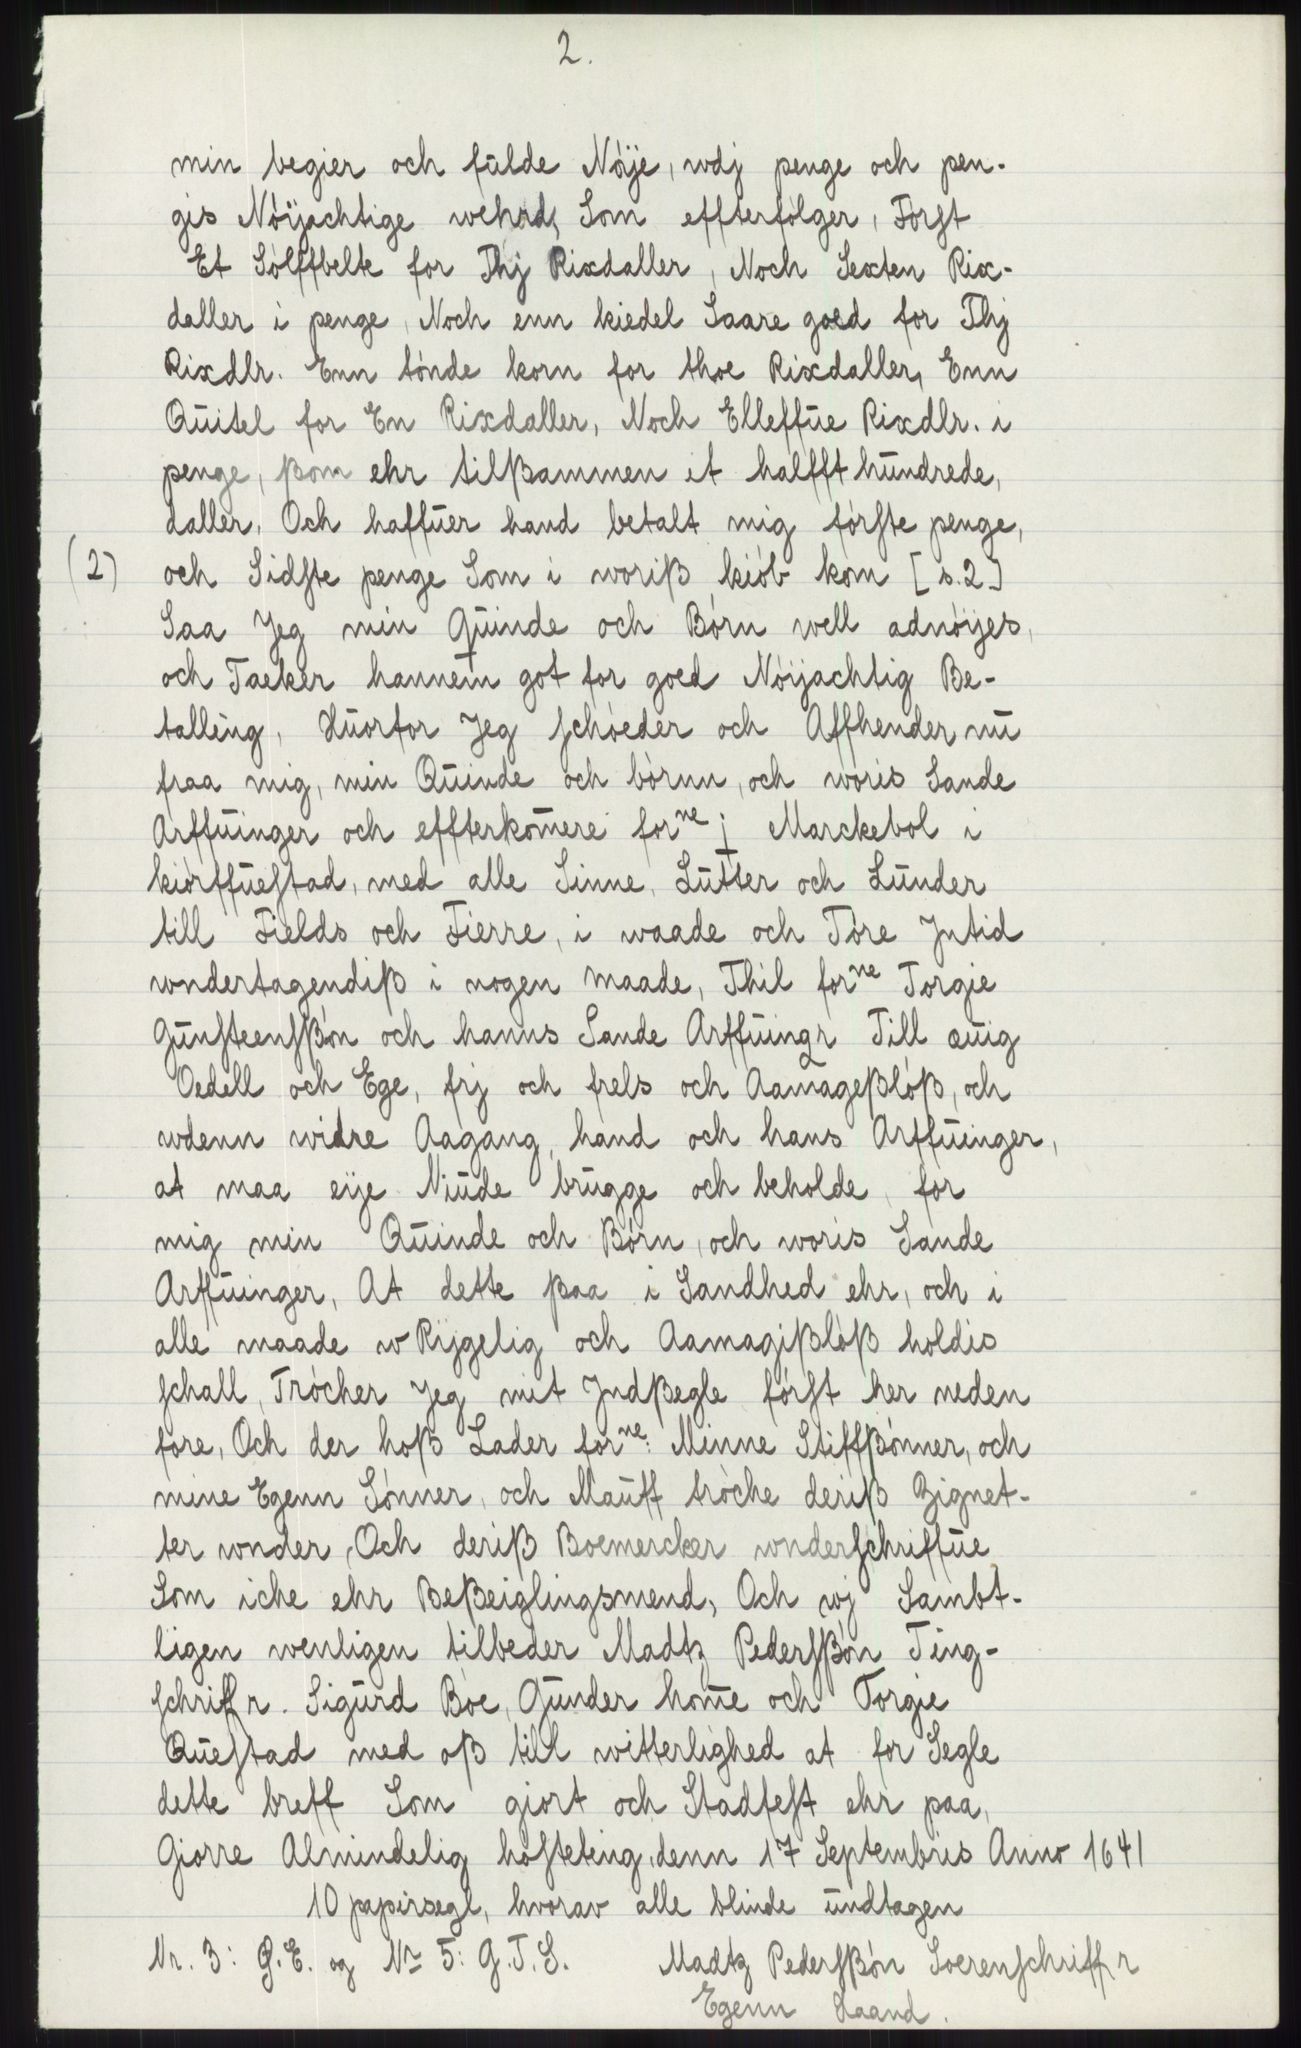 2.
min begier och fulde Nøÿe, wdj penge och pen-
gis Nøÿachtige wehrd, Som effterfølger, Førſt
Et Sølffbelte for Thj Rixdaller, Noch Sexten Rix-
daller i penge, Noch enn kiedel Saare goed for Thj
Rixdlr. Enn tønde korn for thoe Rixdaller, Enn
Quitel for En Rixdaller, Noch Elleffue Rixdlr. i
penge, ßom ehr tilßammen it halfft hundrede,
daller, Och haffuer hand betalt mig førſte penge,
(2) och Sidſte penge Som i woriß kiøb kom [s.2]
Saa Jeg min Quinde och Børn well adnøÿes,
och Tacker hannem got for goed Nøÿachtig Be-
talling, Huorfor Jeg ſchøeder och Affhender nu
fraa mig, min Quinde och børnn, och woris Sande
Arffuinger och effterkom̄ere forne j Marckebol i
kiørffueſtad, med alle Sinne, Lutter och Lunder
till Fields och Fierre, i waade och Tøre Jntid
wndertagendiß i nogen maade, Thil forne Torgie
Gunſteenſßøn och hanns Sande Arffuingr Till æuig
Oedell och Ege, frj och frels och Aamageßløß, och
wdenn widre Aagang, hand och hans Arffuinger,
at maa eÿe Niude brugge och beholde, for
mig min Quinde och Børn, och woris Sande
Arffuinger, At dette ßaa i Sandhed ehr, och i
alle maade w Rÿggelig och Aamagißløß holdis
ſchall, Trøcher Jeg mit Jndßegle førſt her neden
fore, Och der hoß Lader forne: Minne Stiffßønner, och
mine Egenn Sønner, och Mauff trøche deriß Zignet-
ter wnder, Och deriß Boemercker wnderſchriffue
Som iche ehr Beßeiglingsmend, Och wj Sambt-
ligen wenligen tilbeder Madtz Pederſßøn Ting-
ſchriffr. Sigurd Bøe, Gunder home och Torgie
Queſtad med oß till witterlighed at for Segle
dette breff Som giort och Stadfeſt ehr paa,
Giorre Almindelig høſteting, denn 17 Septembris Anno 1641
10 papirsegl, hvorav alle blinde undtagen
Nr. 3: G.E. og Nr 5: G.T.S. Madtz Pederſßøn Soerenſchriffr
Egenn Haand.